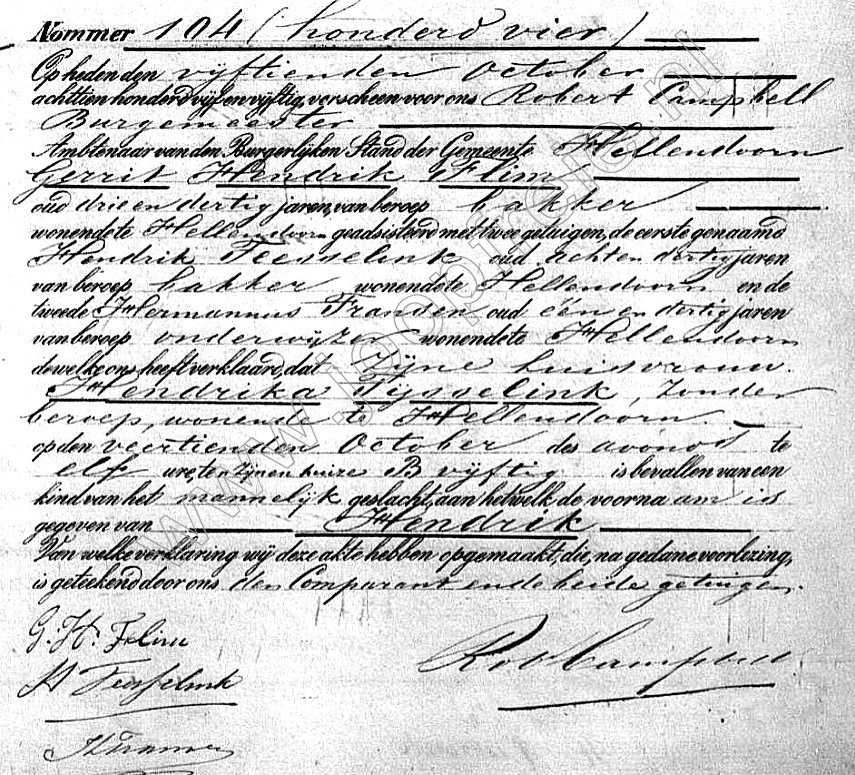 Nommer 104 (honderd vier)
Op heden den vyftienden October
achttien honderd vijf en vijftig, verscheen voor ons Robert Campbell
Burgemeester
Ambtenaar van den Burgerlijken Stand der Gemeente Hellendoorn
Gerrit Hendrik Flim
oud drie en dertig jaren, van beroep bakker
wonende te Hellendoorn geadsisteerd met twee getuigen, de eerste genaamd
Hendrik Teesselink oud achten dertig jaren
van beroep bakker wonende te Hellendoorn en de
tweede Hermannus Fransen oud één en dertig jaren
van beroep onderwyzer wonende te Hellendoorn
dewelke ons heeft verklaard, dat Zyne huisvrouw
Hendrika Tysselink, Zonder
beroep, wonende te Hellendoorn
op den veertienden October des avonds te
elf ure, ten Zynen huize B vyftig is bevallen van een
kind van het mannelyk geslacht, aan hetwelk de voornaam is
gegeven van Hendrik
Van welke verklaring wij deze akte hebben opgemaakt, die, na gedane voorlezing,
is geteekend door ons den Comparant en de beide getuigen.
G. H. Flim
H Teesselink
Rob Campbell
www.jooplfeib.nl